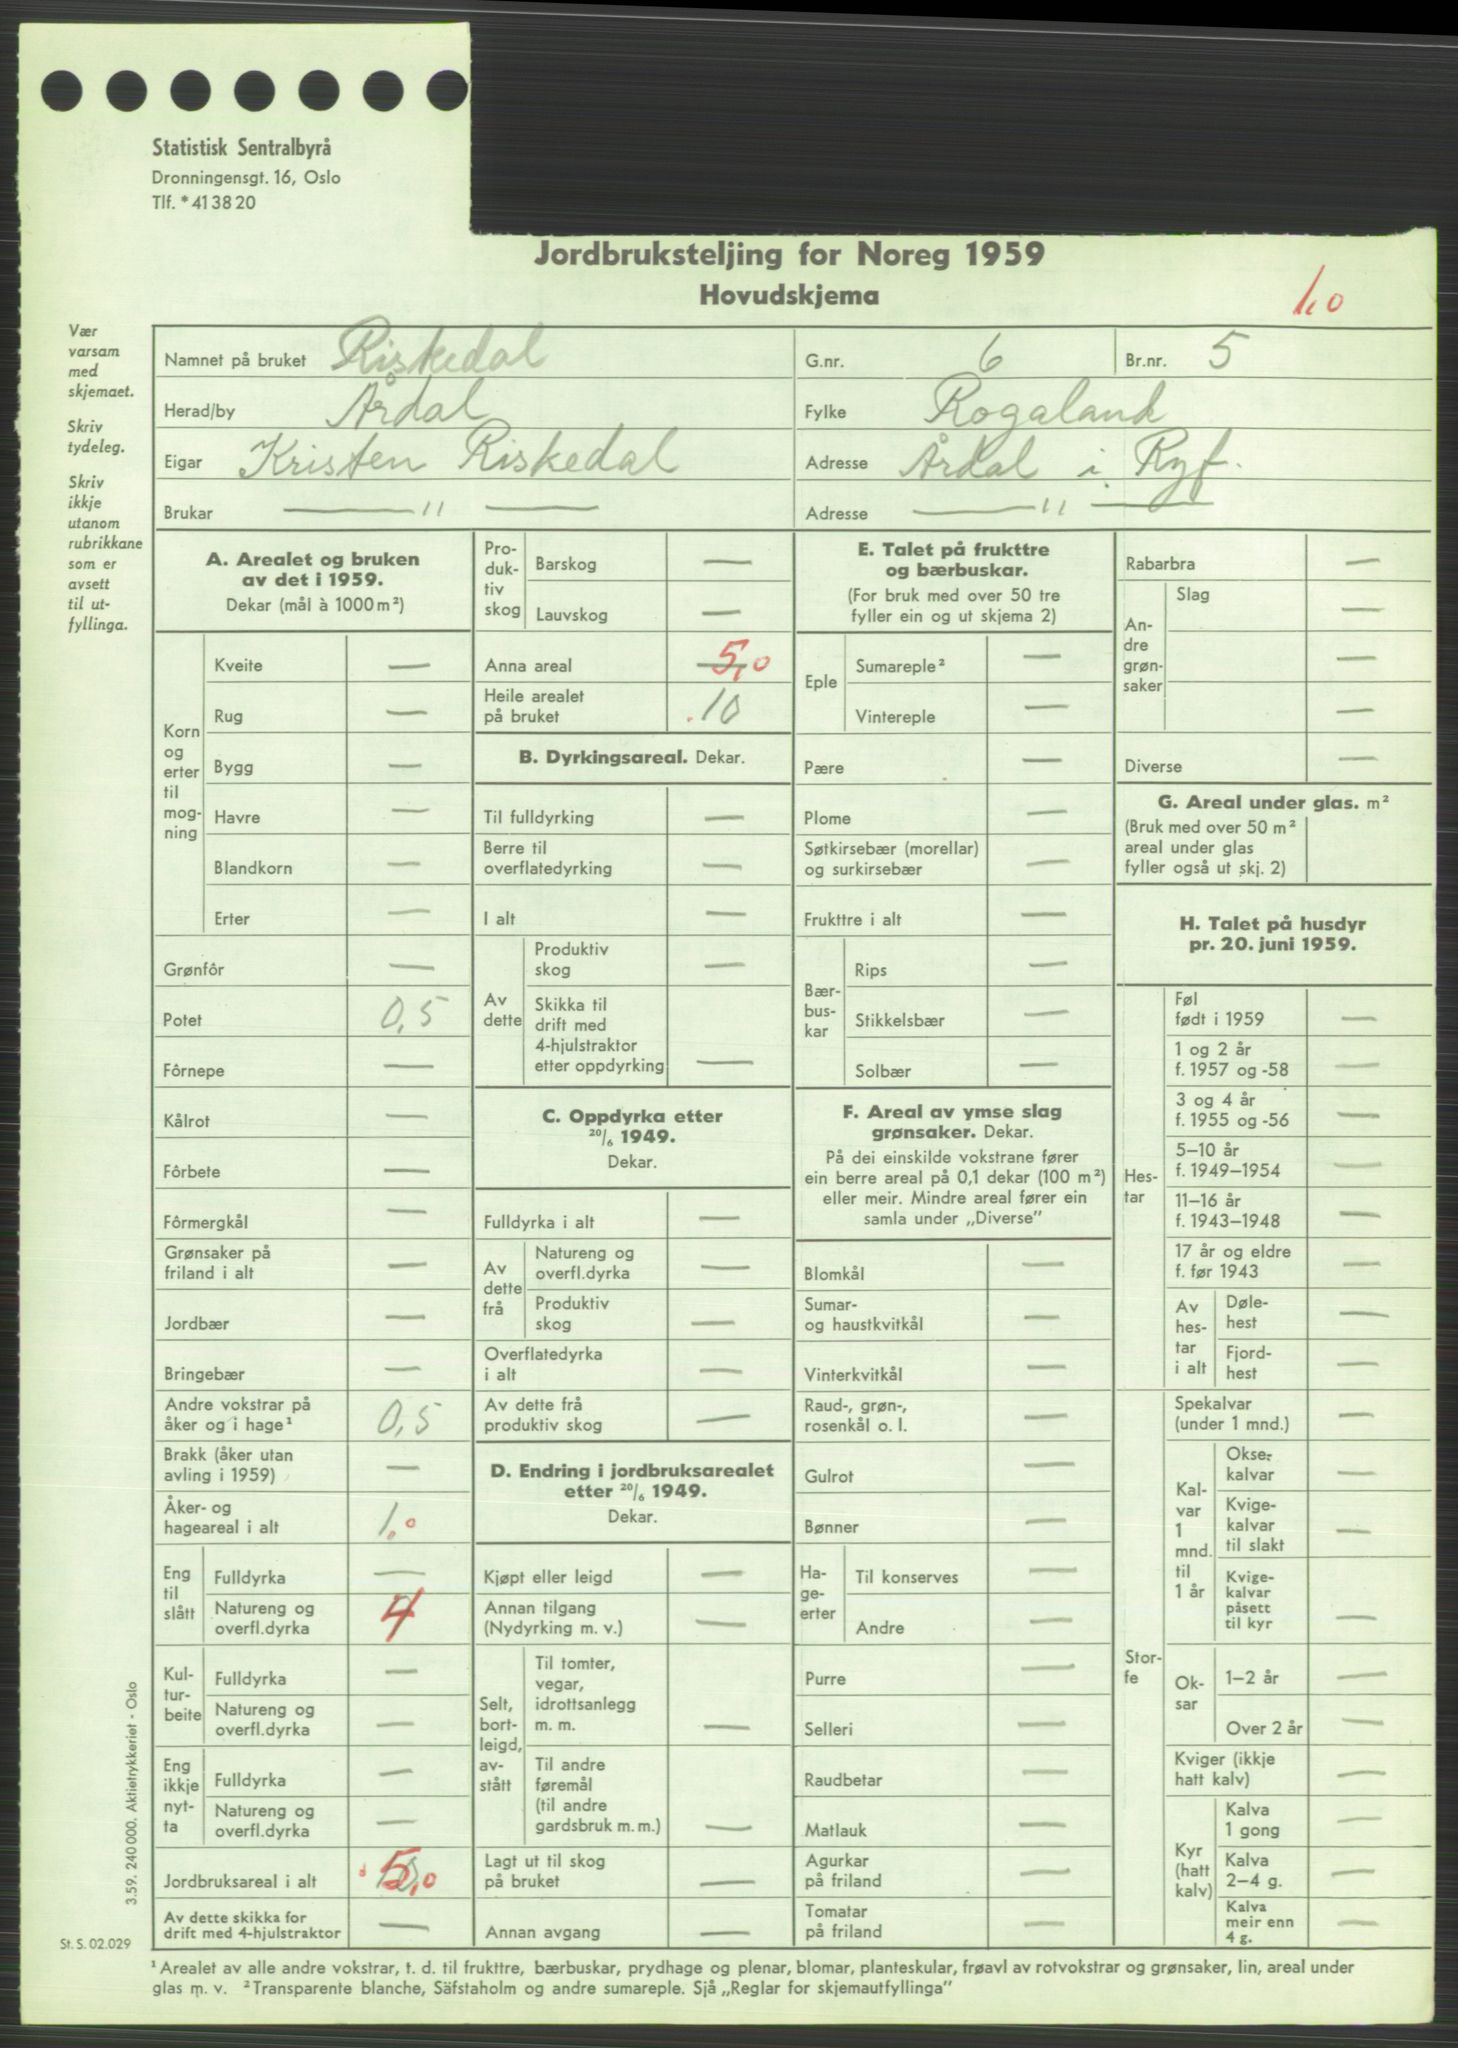 Statistisk Sentralbyrå
Dronningensgt. 16, Oslo
Tlf. * 41 38 20
Jordbruksteljing for Noreg 1959
Hovudskjema
1,0
Vær
varsam
med
skjemaet.
Skriv
tydeleg.
Skriv
ikkje
utanom
rubrikkane
som er
avsett
til ut-
fyllinga.
Namnet på bruket Riskedal G.nr. 6 Br.nr. 5
Herad/by Årdal Fylke Rogaland
Eigar Kristen Riskedal Adresse Årdal i Ryf.
Brukar — " — Adresse — " —
A. Arealet og bruken
av det i 1959.
Dekar (mål à 1000 m²)
Korn
og
erter
til
mog-
ning
Kveite —
Rug —
Bygg —
Havre —
Blandkorn —
Erter —
Grønfôr —
Potet 0,5
Fôrnepe —
Kålrot —
Fôrbete —
Fôrmergkål —
Grønsaker på
friland i alt —
Jordbær —
Bringebær —
Andre vokstrar på
åker og i hage¹ 0,5
Brakk (åker utan
avling i 1959) —
Åker- og
hageareal i alt 1,0
Eng
til
slått
Fulldyrka —
Natureng og
overfl.dyrka 4
Kul-
tur-
beite
Fulldyrka —
Natureng og
overfl.dyrka —
Eng
ikkje
nyt-
ta
Fulldyrka —
Natureng og
overfl.dyrka —
Jordbruksareal i alt 5,0
Av dette skikka for
drift med 4-hjulstraktor —
Pro-
duk-
tiv
skog
Barskog —
Lauvskog —
Anna areal 5,0
Heile arealet
på bruket 10
B. Dyrkingsareal. Dekar.
Til fulldyrking —
Berre til
overflatedyrking —
I alt —
Av
dette
Produktiv
skog —
Skikka til
drift med
4-hjulstraktor
etter oppdyrking —
C. Oppdyrka etter
20/6 1949.
Dekar.
Fulldyrka i alt —
Av
dette
frå
Natureng og
overfl.dyrka —
Produktiv
skog —
Overflatedyrka
i alt —
Av dette frå
produktiv skog —
D. Endring i jordbruksarealet
etter 20/6 1949.
Dekar.
Kjøpt eller leigd —
Annan tilgang
(Nydyrking m. v.) —
Selt,
bort-
leigd,
av-
stått
Til tomter,
vegar,
idrottsanlegg
m. m. —
Til andre
føremål
(til andre
gardsbruk m. m.) —
Lagt ut til skog
på bruket —
Annan avgang —
E. Talet på frukttre
og bærbuskar.
(For bruk med over 50 tre
fyller ein og ut skjema 2)
Eple
Sumareple² —
Vintereple —
Pære —
Plome —
Søtkirsebær (morellar)
og surkirsebær —
Frukttre i alt —
Bær-
bus-
kar
Rips —
Stikkelsbær —
Solbær —
F. Areal av ymse slag
grønsaker. Dekar.
På dei einskilde vokstrane fører
ein berre areal på 0,1 dekar (100 m²)
eller meir. Mindre areal fører ein
samla under „Diverse”
Blomkål —
Sumar-
og haustkvitkål —
Vinterkvitkål —
Raud-, grøn-,
rosenkål o. l. —
Gulrot —
Bønner —
Ha-
ge-
erter
Til konserves —
Andre —
Purre —
Selleri —
Raudbetar —
Matlauk —
Agurkar
på friland —
Tomatar
på friland —
Rabarbra —
An-
dre
grøn-
saker
Slag
—
—
—
Diverse —
G. Areal under glas. m²
(Bruk med over 50 m²
areal under glas
fyller også ut skj. 2)
H. Talet på husdyr
pr. 20. juni 1959.
Hes-
tar
Føl
født i 1959 —
1 og 2 år
f. 1957 og -58 —
3 og 4 år
f. 1955 og -56 —
5–10 år
f. 1949–1954 —
11–16 år
f. 1943–1948 —
17 år og eldre
f. før 1943 —
Av
hes-
tar
i alt
Døle-
hest —
Fjord-
hest —
Stor-
fe
Spekalvar
(under 1 mnd.) —
Kal-
var
1
mnd.
til
1 år
Okse-
kalvar —
Kvige-
kalvar
til slakt —
Kvige-
kalvar
påsett
til kyr —
Ok-
sar
1–2 år —
Over 2 år —
Kviger (ikkje
hatt kalv) —
Kyr
(hatt
kalv)
Kalva
1 gong —
Kalva
2–4 g. —
Kalva
meir enn
4 g. —
3.59. 240 000. Aktietrykkeriet - Oslo
St. S. 02.029
¹ Arealet av alle andre vokstrar, t. d. til frukttre, bærbuskar, prydhage og plenar, blomar, planteskular, frøavl av rotvokstrar og grønsaker, lin, areal under
glas m. v. ² Transparente blanche, Säfstaholm og andre sumareple. Sjå „Reglar for skjemautfyllinga”